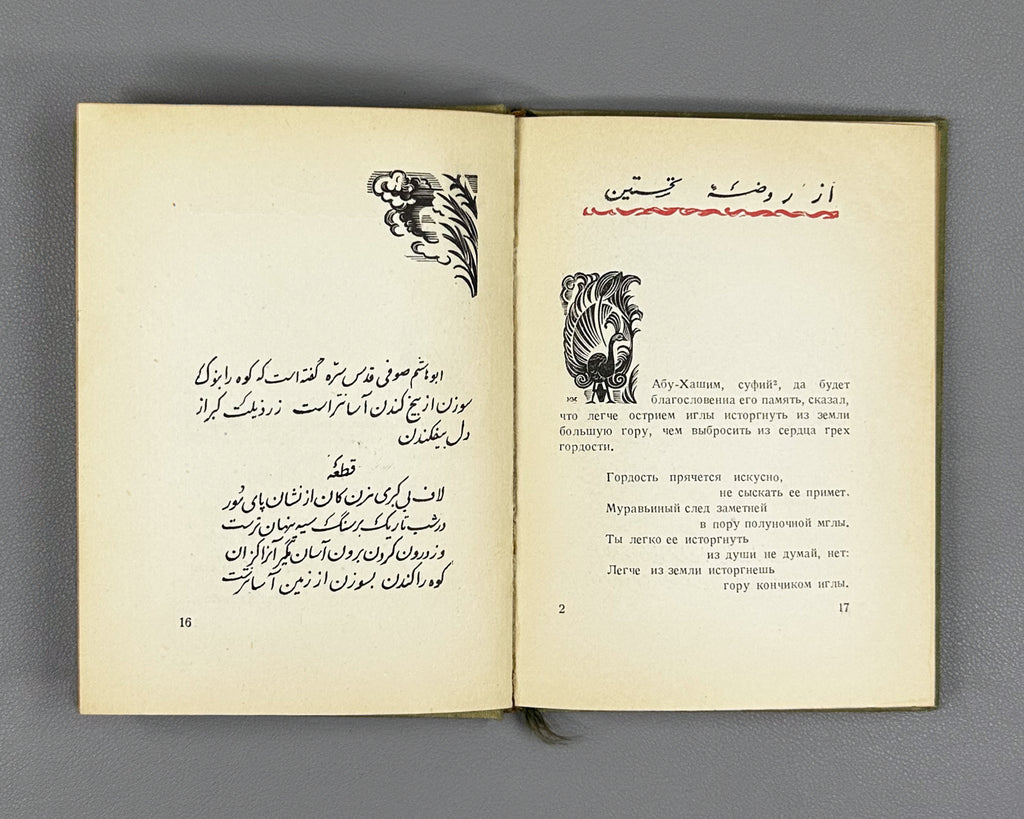 ابو هاشم صوفی قدس سرّه گفته است که کوه را بنوک
سوزن از بیخ کندن آسانتر است از رذیلت کبر از
دل بیفکندن
قطعهٔ
لاف بی کبری مزن کان از نشان پای مور
در شب تاریک بر سنگ سیه پنهان ترست
وز درون کردن برون آسان مگیر آنرا کزان
کوه را کندن بسوزن از زمین آسانترست
16
از روضهٔ نخستین
Абу-Хашим, суфий², да будет
благословенна его память, сказал,
что легче острием иглы исторгнуть из земли
большую гору, чем выбросить из сердца грех
гордости.
Гордость прячется искусно,
не сыскать ее примет.
Муравьиный след заметней
в пору полуночной мглы.
Ты легко ее исторгнуть
из души не думай, нет:
Легче из земли исторгнешь
гору кончиком иглы.
2
17